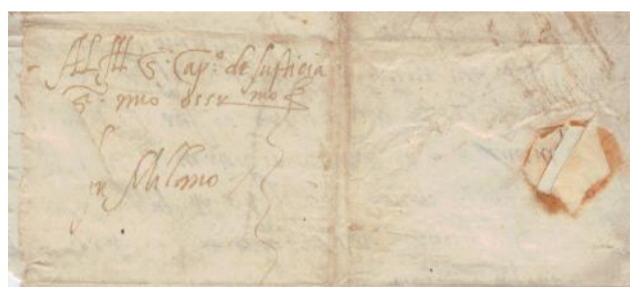 Al Ill S.r Cap.o de Justicia
S.r mio osser.mo
in Milano